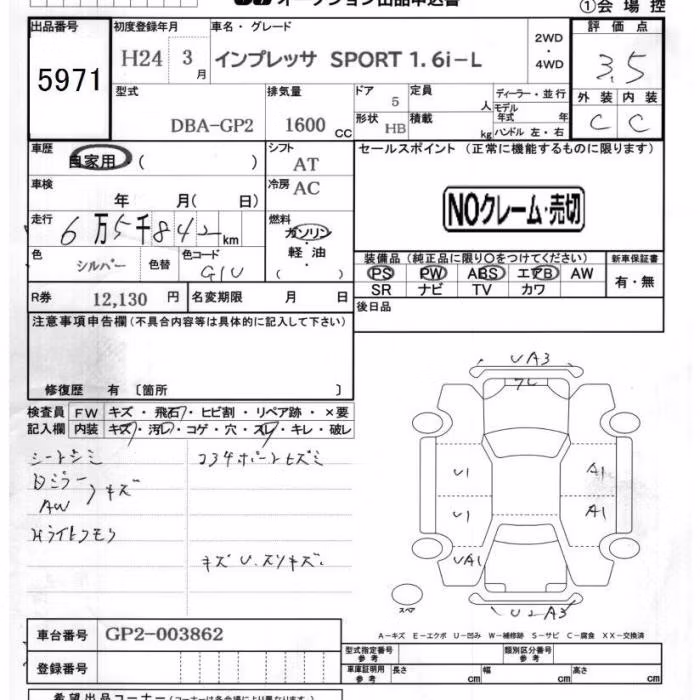 オークション出品申込書
①会場控
出品番号
5971
初度登録年月
H24 3月
車名・グレード
インプレッサ SPORT 1.6i-L
2WD
・
4WD
評価点
3.5
外装 内装
C C
型式
DBA-GP2
排気量
1600 CC
ドア 5
定員 人
形状 HB
積載 kg
ディーラー・並行
モデル年式 年
ハンドル 左・右
車歴
自家用 ( )
シフト
AT
車検
年 月( 日)
冷房
AC
走行
6万5千842km
燃料
ガソリン
・
軽油
( )
色
シルバー
色替
色コード
G1U
R券 12,130 円
名変期限 月 日
セールスポイント (正常に機能するものに限ります)
NOクレーム・売切
装備品 (純正品に限り○をつけてください)
PS PW ABS エアB AW
SR ナビ TV カワ
新車保証書
有・無
後日品
注意事項申告欄(不具合内容等は具体的に記入して下さい)
修復歴 有 〔箇所 〕
検査員記入欄
FW キズ・飛石・ヒビ割・リペア跡・×要
内装 キズ・汚レ・コゲ・穴・スレ・キレ・破レ
シートシミ
Dミラー
AW
キズ
Hライトクモリ
キズU.スリキズ.
UA3
U1
U1
UA1
A1
A1
U2A3
スペア
A-キズ E-エクボ U-凹み W-補修跡 S-サビ C-腐食 XX-交換済
車台番号 GP2-003862
登録番号
型式指定番号
参考
類別区分番号
参考
車庫証明用
参考
長さ cm
幅 cm
高さ cm
希望出品コーナー(コーナーは各会場により異なります)